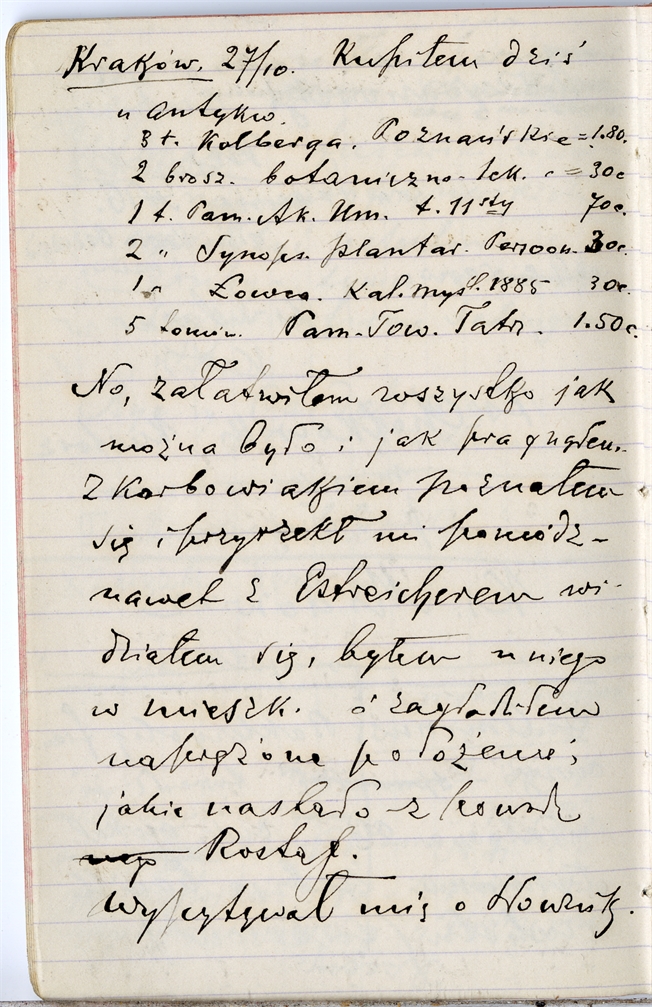 Kraków. 27/10. Kupiłem dziś
u antykw.
3 t. Kolberga. Poznańskie = 1.80.
2 brosz. botaniczno-lek. = 30c
1 t. Pam. Ak. Um. t. 11sty 70c.
2 " Synops. plantar. Persoon. 30c.
1 " Łowca. Kal. myśl. 1885 30c.
5 tomów. Pam. Tow. Tatr. 1.50c.
No, załatwiłem wszystko jak
można było i jak pragnąłem.
Z Karbowiakiem poznałem
się i przyrzekł mi pomódz-
nawet z Estreicherem wi-
działem się, byłem u niego
w mieszk. i zagładziłem
naprężone położenie,
jakie nastało z powodu
Rostaf.
Wypytywał mię o